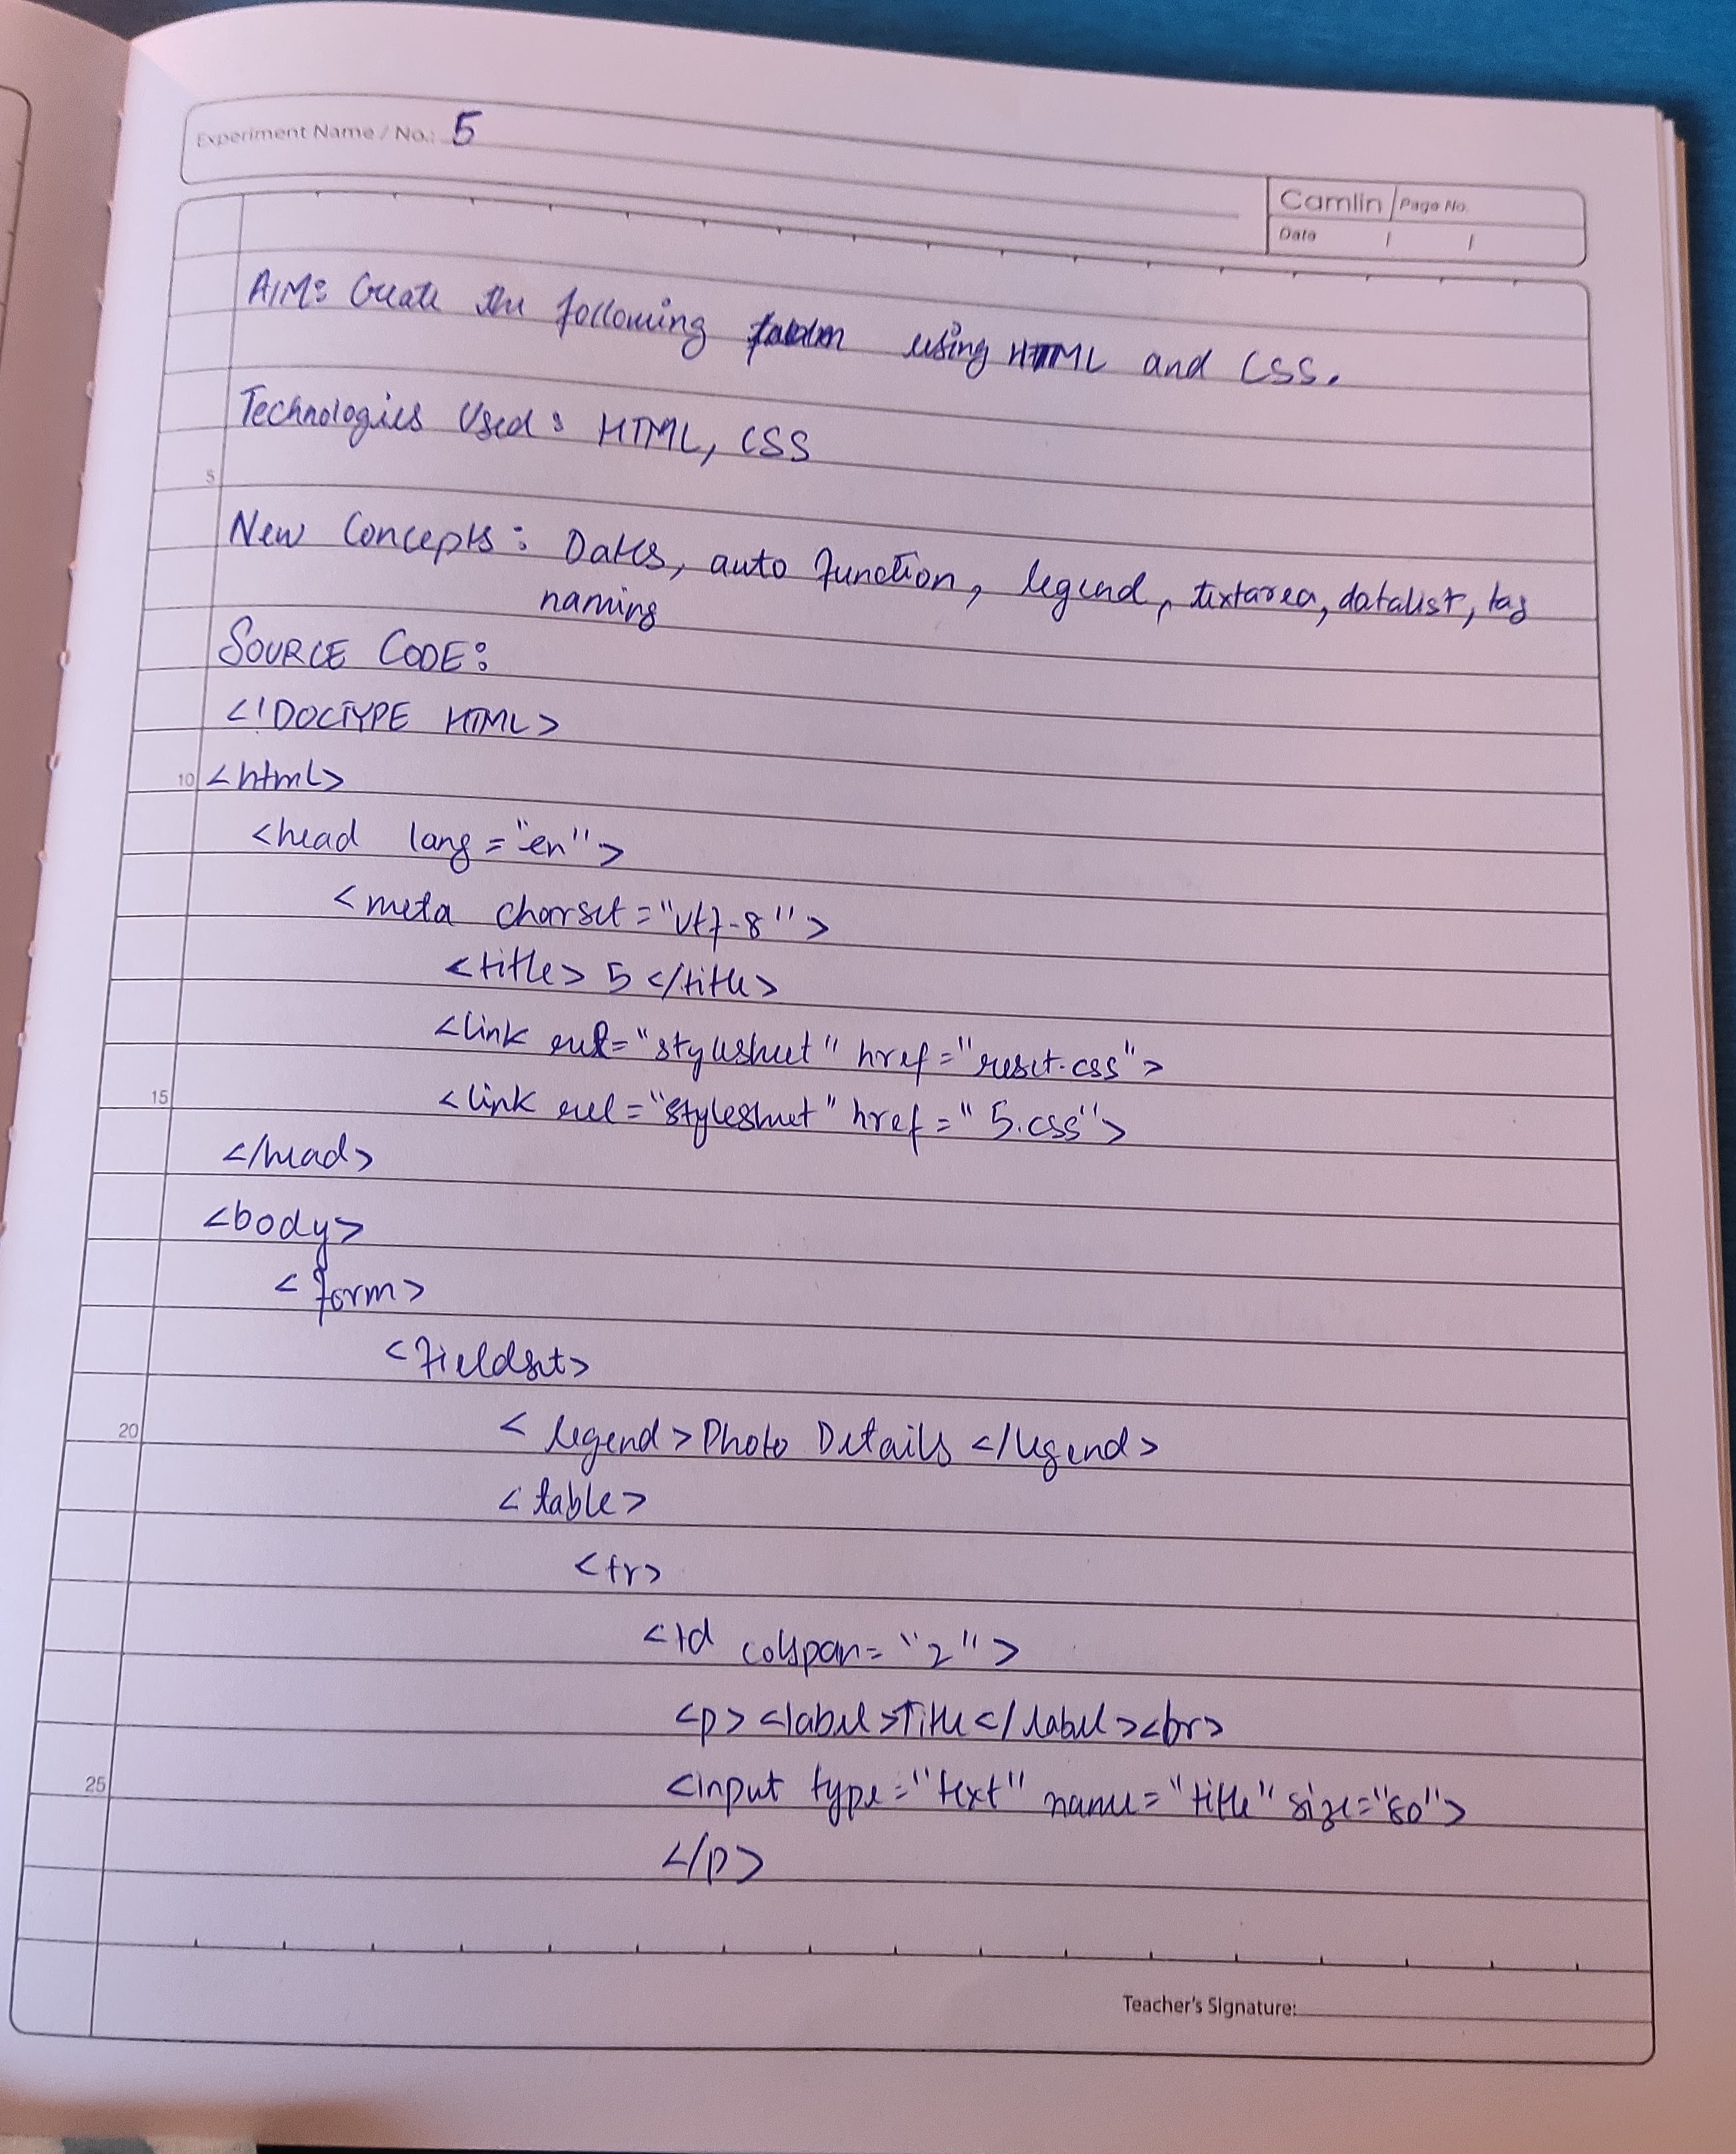 Experiment Name / No.: 5
Camlin Page No.
Date / /
AIM: Create the following using HTML and CSS.
Technologies Used: HTML, CSS
5
New Concepts: Dates, auto function, legend, textarea, datalist, tag
naming
SOURCE CODE:
<!DOCTYPE HTML>
10 <html>
<head lang="en">
<meta charset="utf-8">
<title> 5 </title>
<link rel="stylesheet" href="reset.css">
15 <link rel="stylesheet" href="5.css">
</head>
<body>
<form>
<fieldset>
20 <legend> Photo Details </legend>
<table>
<tr>
<td colspan="2">
<p> <label>Title</label><br>
25 <input type="text" name="title" size="80">
</p>
Teacher's Signature: